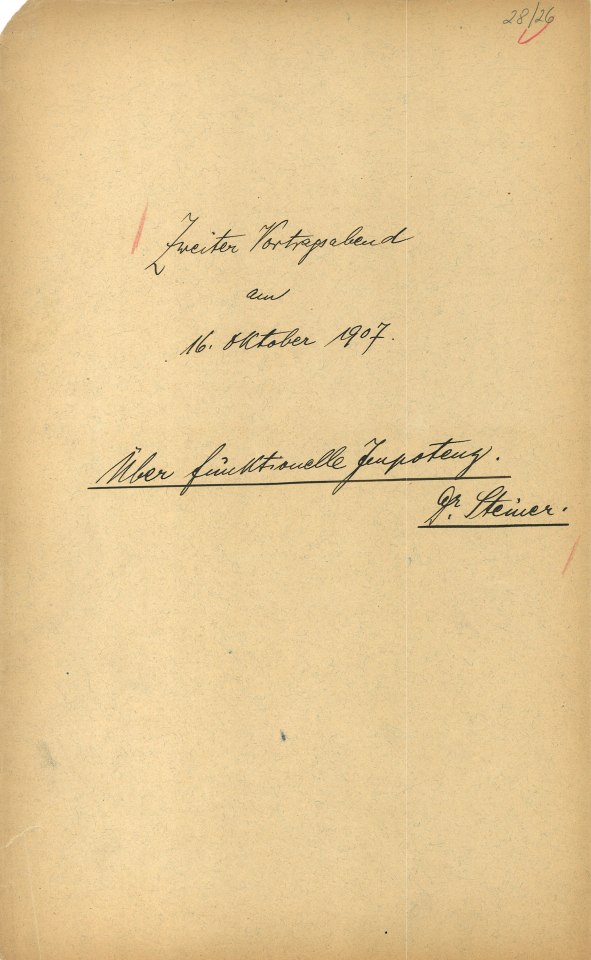 28/26
Zweiter Vortragsabend
am
16. Oktober 1907.
Über funktionelle Impotenz.
Dr. Steiner.